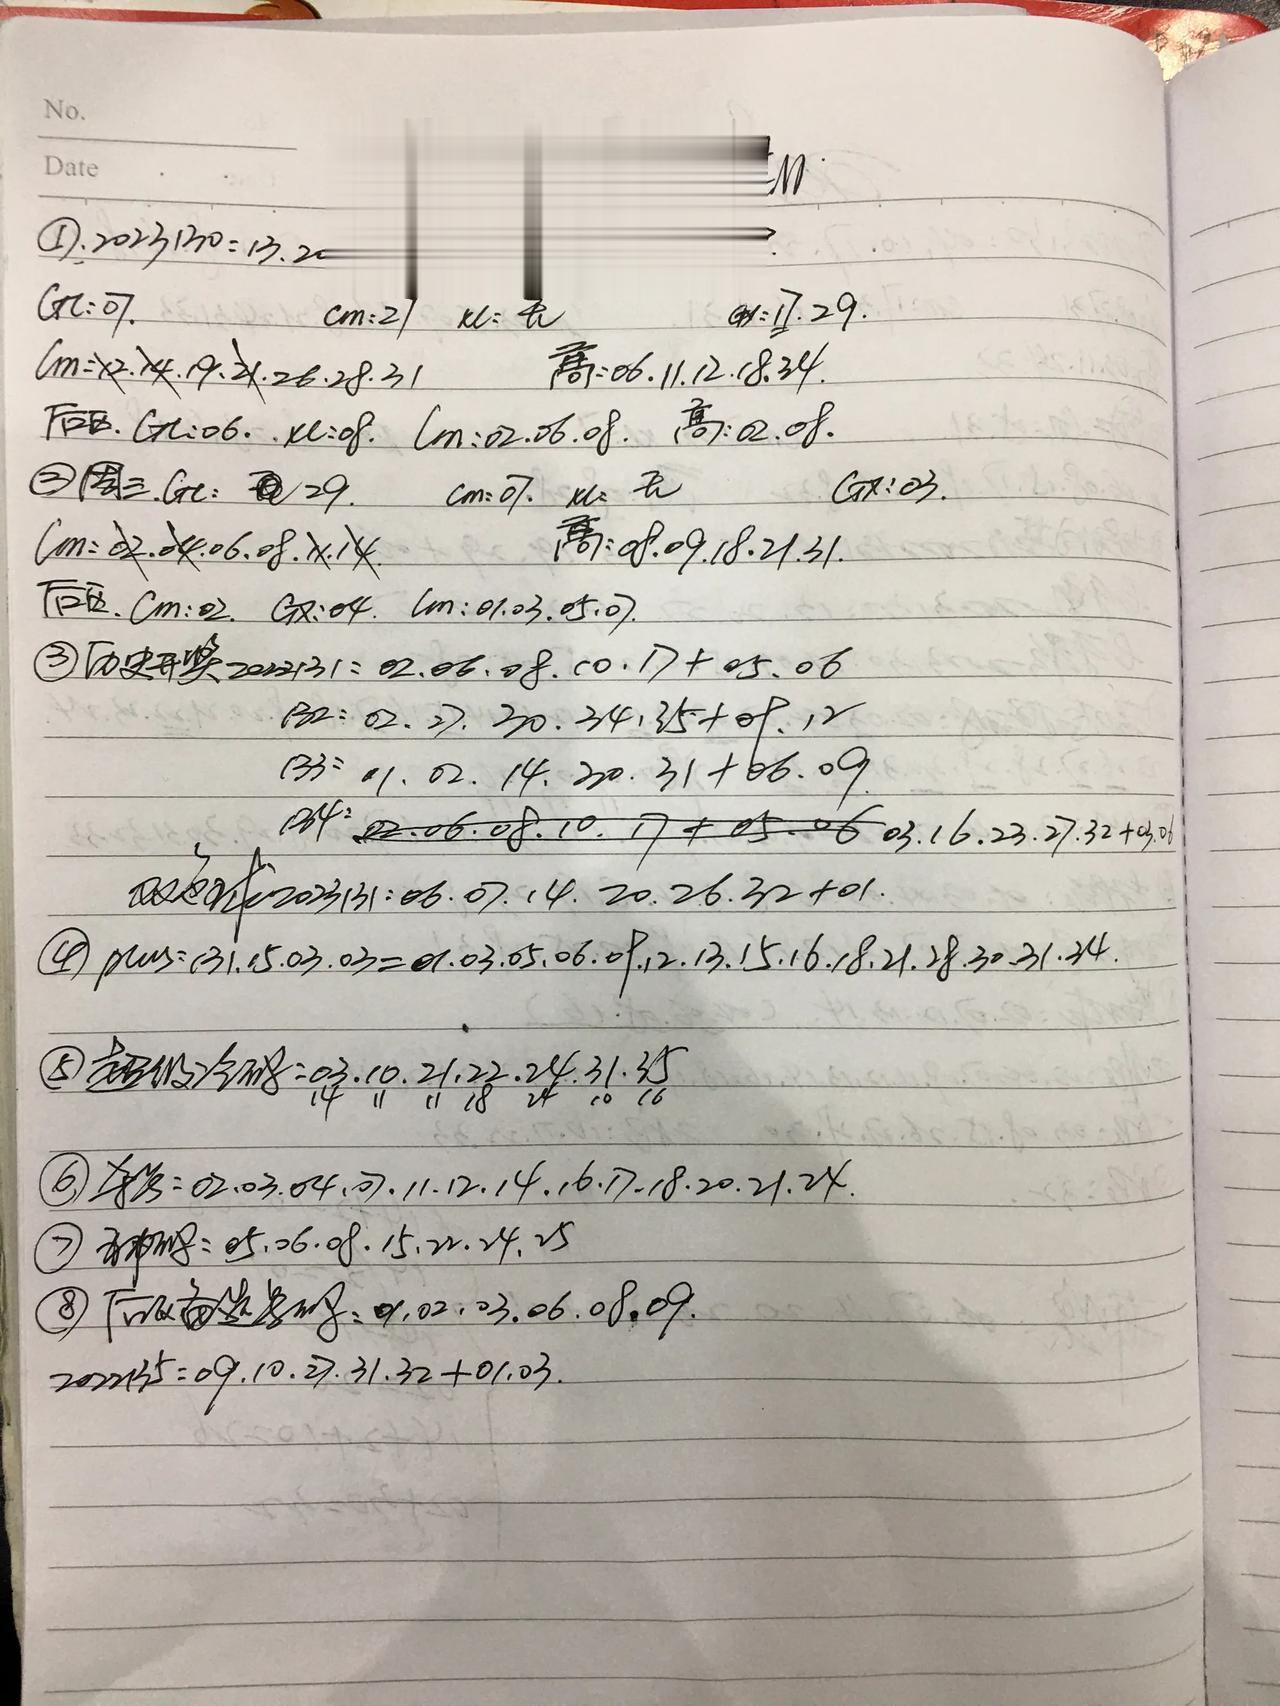 No.
Date
①.2023130=13.20
GL:07. Cm:21 XL:无 GX:17.29.
Cm=12.14.19.21.26.28.31 高:06.11.12.18.34.
后区.GL:06. XL:08. Cm:02.06.08. 高:02.08.
②周三.GL: 29. Cm:07. XL:无 GX:03.
Cm=02.04.06.08.11.14 高:08.09.18.21.31.
后区.Cm:02. GX:04. Cm:01.03.05.07.
③历史开奖2022131=02.06.08.10.17+05.06
132=02.27.30.34.35+08.12
133=01.02.14.30.31+06.09
134=02.06.08.10.17+05.06 03.16.23.27.32+03.06
双色球2023131:06.07.14.20.26.32+01.
④plus=131.15.03.03=01.03.05.06.08.12.13.15.16.18.21.28.30.31.34.
⑤冷码=03.10.21.22.24.31.35
14 11 11 18 24 10 16
⑥=02.03.04.07.11.12.14.16.17.18.20.21.24.
⑦码=05.06.08.15.22.24.25
⑧后区码=01.02.03.06.08.09.
2022135=09.10.27.31.32+01.03.